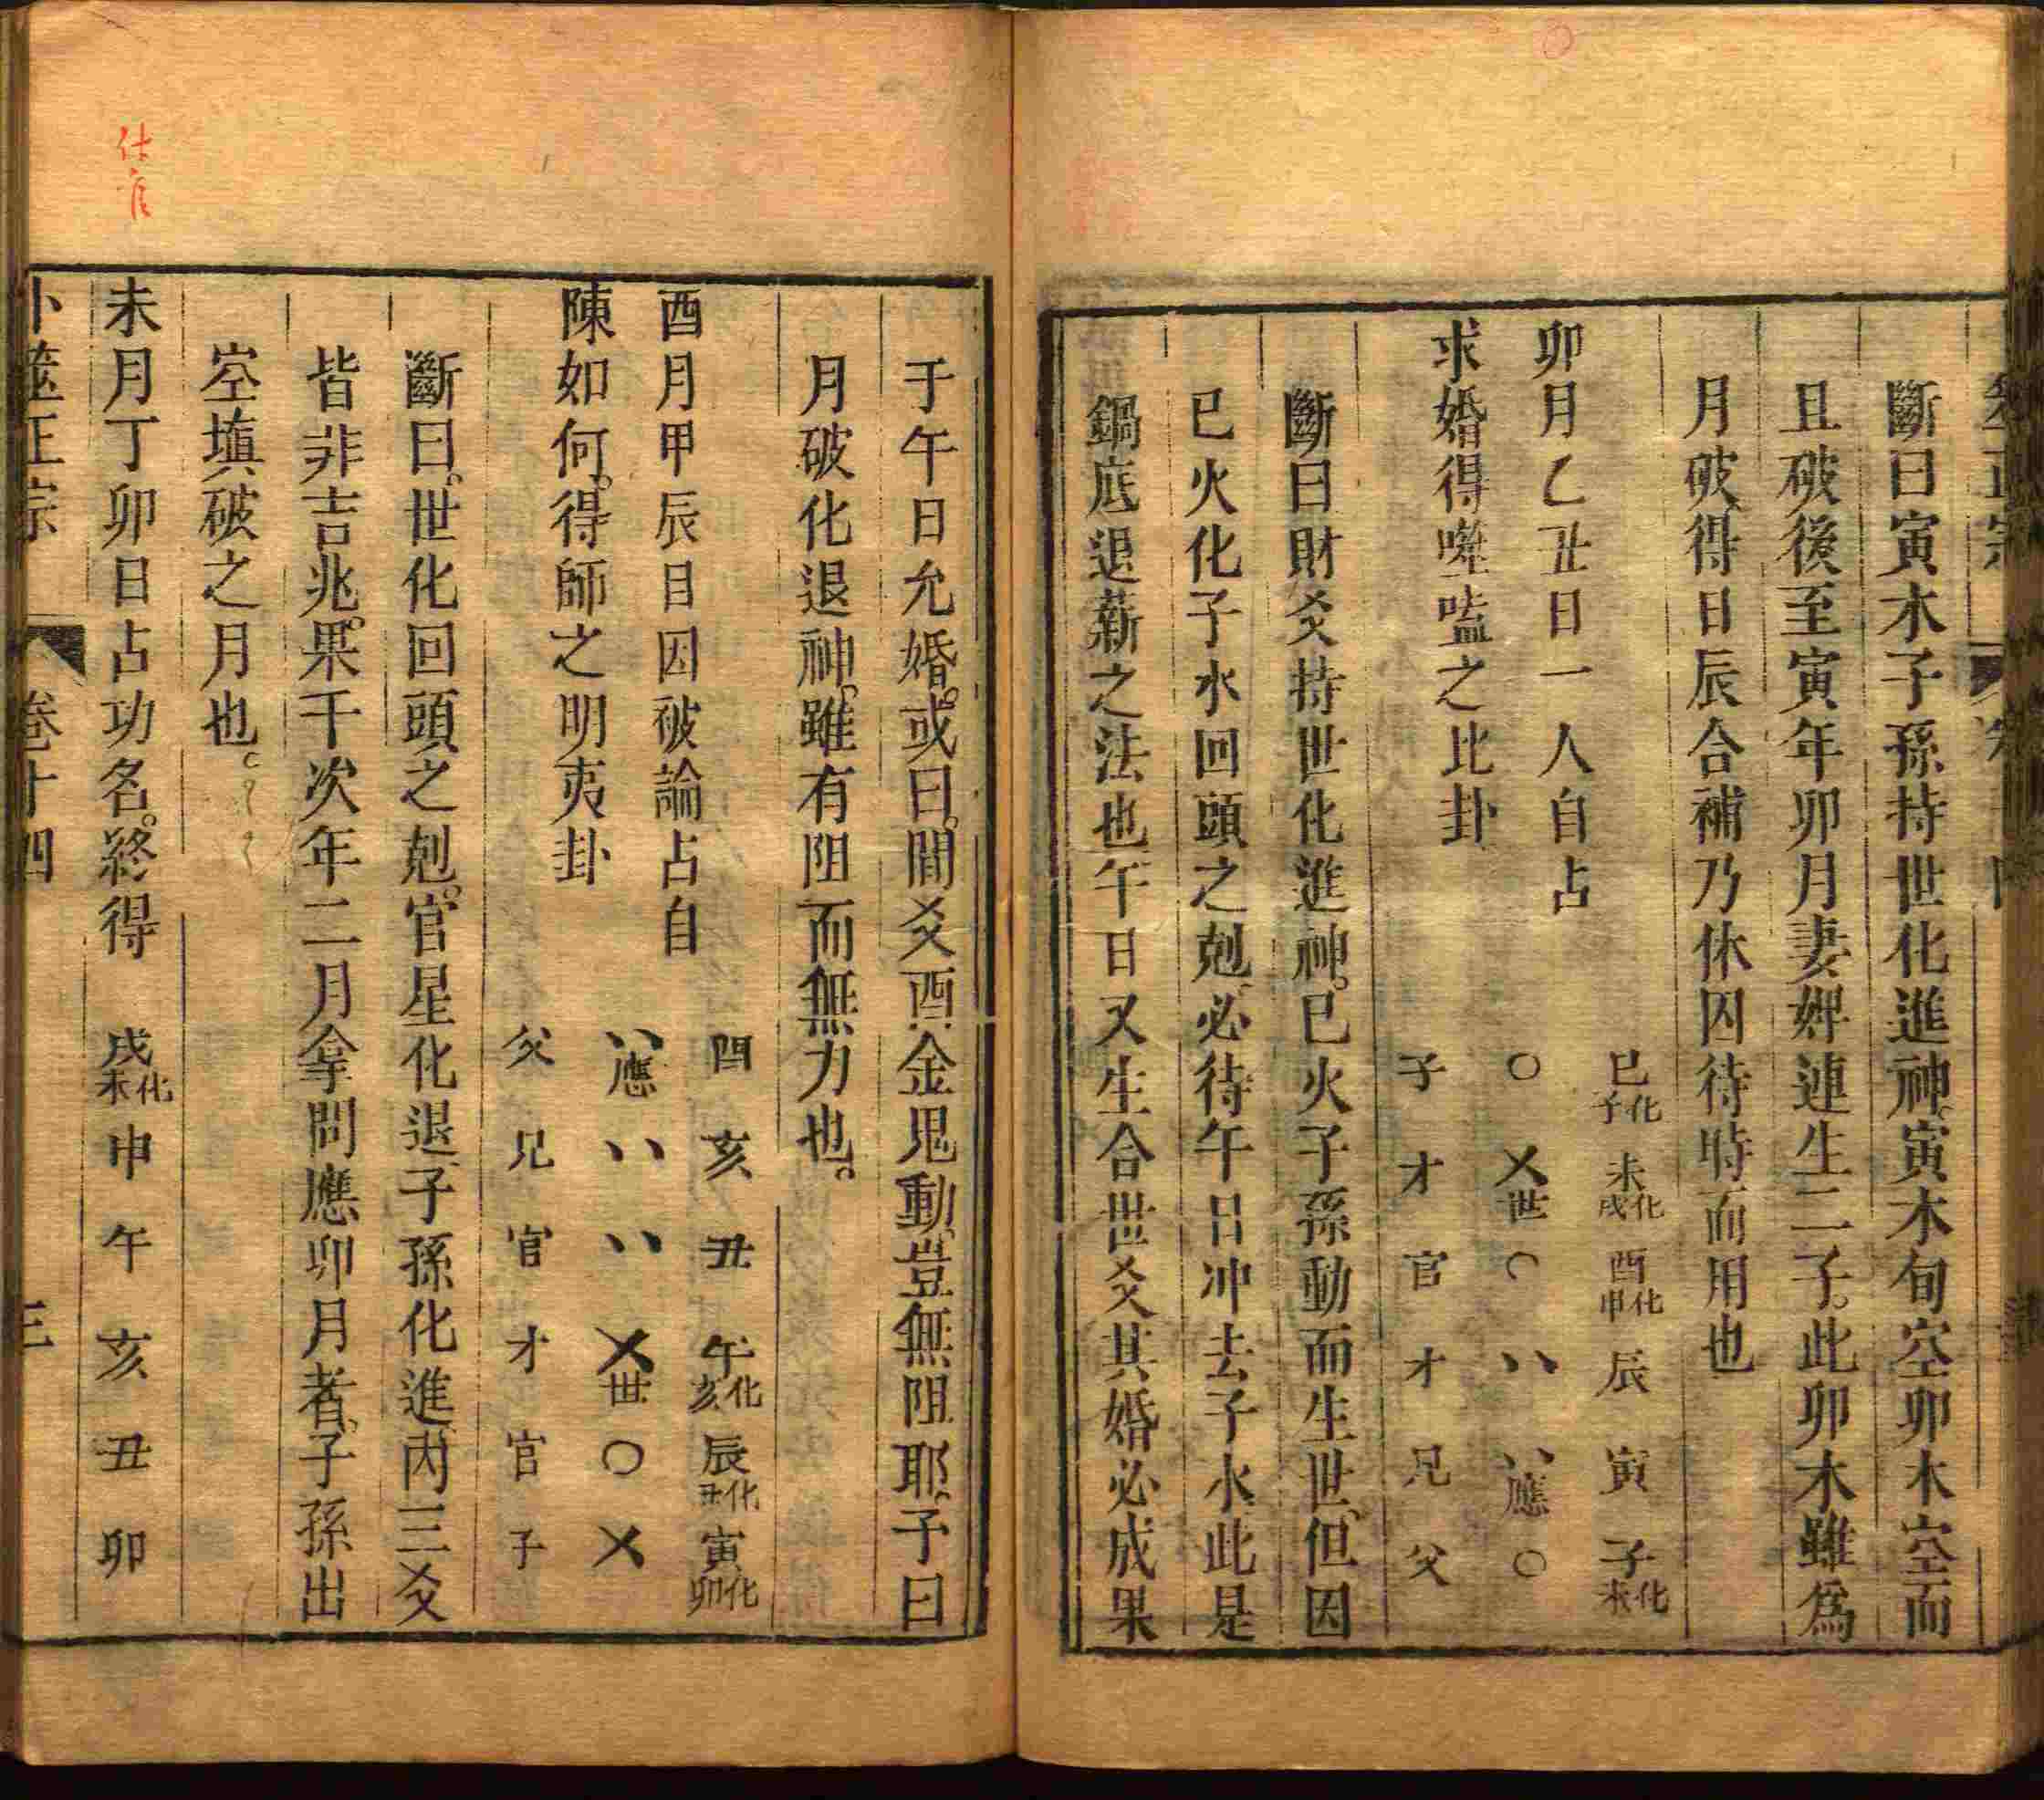 斷曰寅木子孫持世化進神寅木旬空卯木空而
且破後至寅年卯月妻婢連生二子此卯木雖爲
月破得日辰合補乃休囚待時而用也
卯月乙丑日一人自占
求婚得噬嗑之比卦
巳化子 未化戌 酉化申 辰 寅 子化未
〇 乂世 〇 八 八應 〇
子 才 官 才 兄 父
斷曰財爻持世化進神巳火子孫動而生世但因
巳火化子水回頭之剋必待午日冲去子水此是
鍋底退薪之法也午日又生合世爻其婚必成果
于午日允婚或曰間爻酉金鬼動豈無阻耶予曰
月破化退神雖有阻而無力也
酉月甲辰日因破論占自
陳如何得師之明夷卦
酉 亥 丑 午化亥 辰化丑 寅化卯
八應 八 八 乂世 〇 乂
父 兄 官 才 官 子
斷曰世化回頭之剋官星化退子孫化進內三爻
皆非吉兆果于次年二月拿問應卯月者子孫出
空填破之月也
未月丁卯日占功名終得
戌化未 申 午 亥 丑 卯
卜筮正宗 卷十四 三